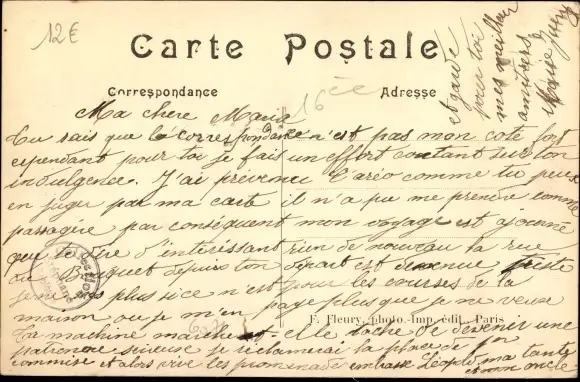 12€
Carte Postale
Correspondance
Adresse
16
Ma chere Maria
Tu sais que la correspondance n'est pas mon coté fort
cependant pour toi je fais un effort comptant sur ton
indulgence. J'ai prévenu comme tu peux
en juger par ma carte il n'a pu me prendre comme
passagère par conséquent mon voyage est ajourné
que te dire d'intéressant rien de nouveau la rue
du Bouquet depuis ton départ est devenue triste
plus si ce n'est pour les courses de la
maison ou je m'en page plus que je ne veux
F. Fleury, photo-imp. édit. Paris
La machine marche et elle tache de devenir une
patronne sérieuse je réclamerai la place de
commise et alors vive les promenades embrasse Léopold, ma tante
et mon oncle
et garde
pour toi
mes meilleures
amitiés